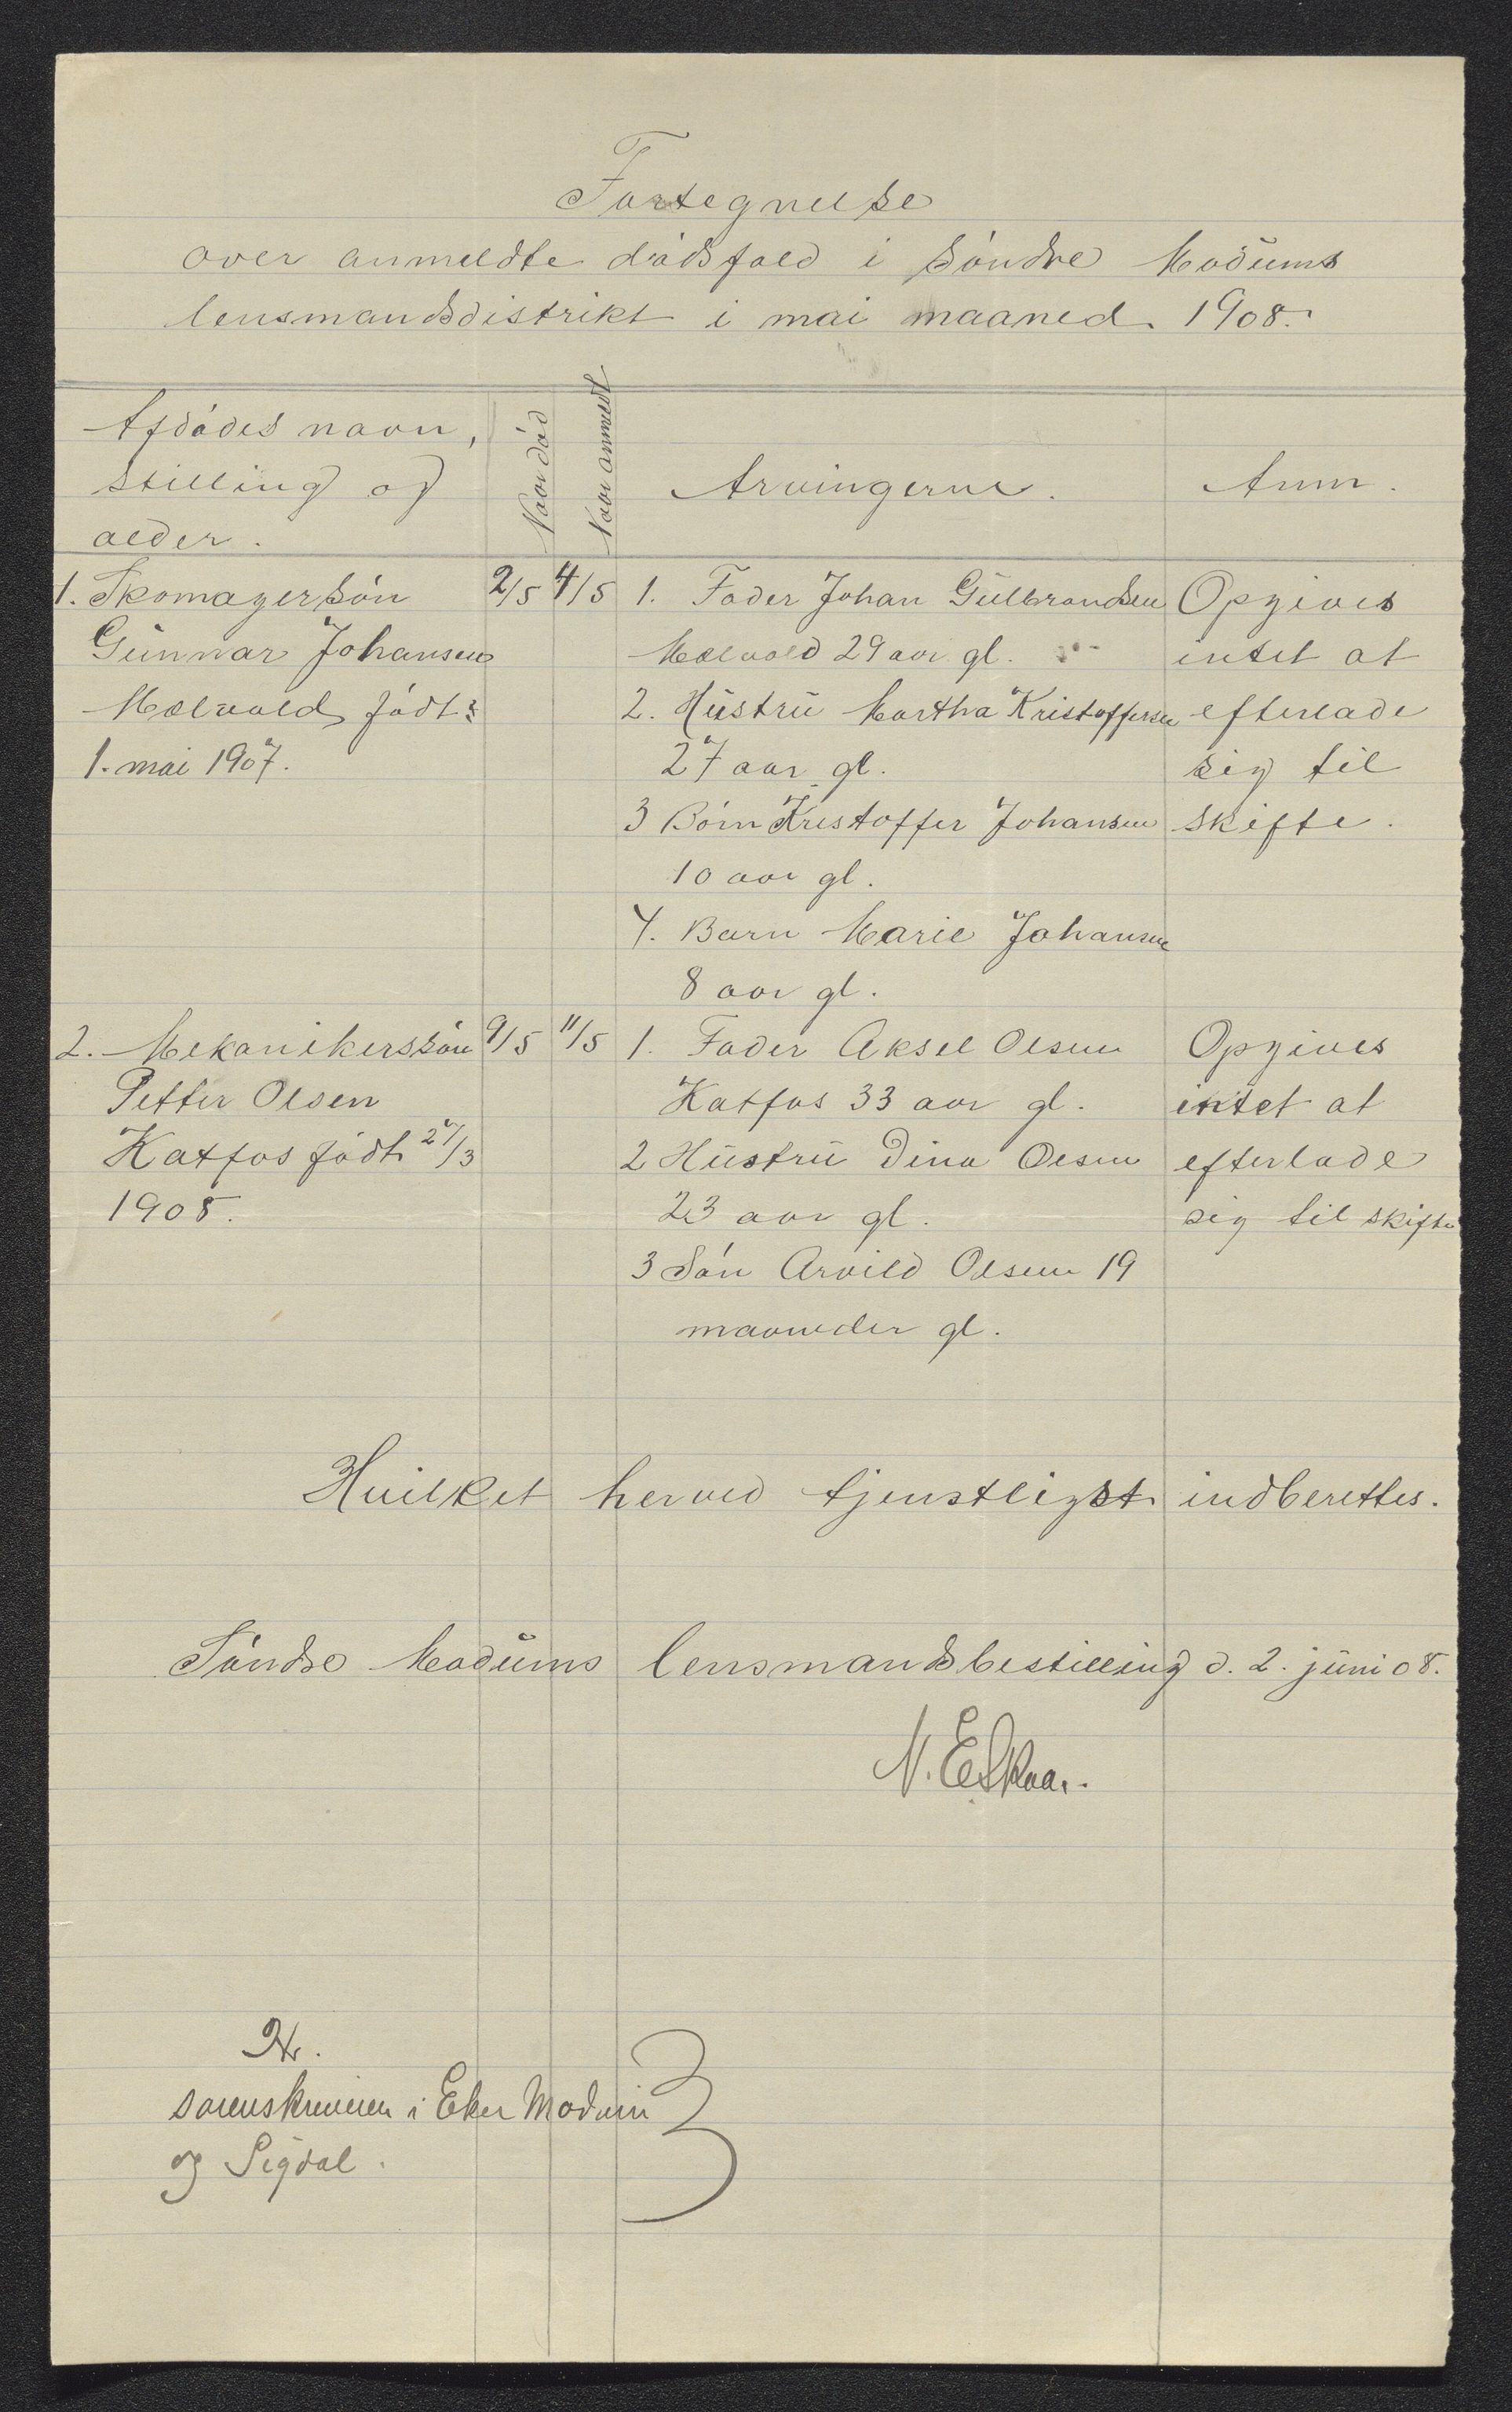 Fortegnelse
over anmeldte dödsfald i Söndre Modums
lensmandsdistrikt i mai maaned 1908.
Afdödes navn,
stilling og
alder.
Naar död
Naar anmeldt
Arvingerne.
Anm.
1. Skomagersön 2/5 4/5 1. Fader Johan Gulbrandsen Opgives
Gunnar Johansen Mælvold 29 aar gl. intet at
Mælvold födt 2. Hustru Martha Kristoffersen efterlade
1. mai 1907. 27 aar gl. sig til
3 Börn Kristoffer Johansen skifte.
10 aar gl.
4. Barn Marie Johansen
8 aar gl.
2. Mekanikerssön 9/5 11/5 1. Fader Aksel Olsen Opgives
Petter Olsen Katfos 33 aar gl. intet at
Katfos födt 27/3 2 Hustru Dina Olsen efterlade
1908. 23 aar gl. sig til skifte
3 Sön Arvild Olsen 19
maaneder gl.
Hvilket herved tjenstligst indberettes.
Söndre Modums lensmandsbestilling d. 2. juni 08.
Hr.
sorenskriveren i Eker Modum
og Sigdal.
3